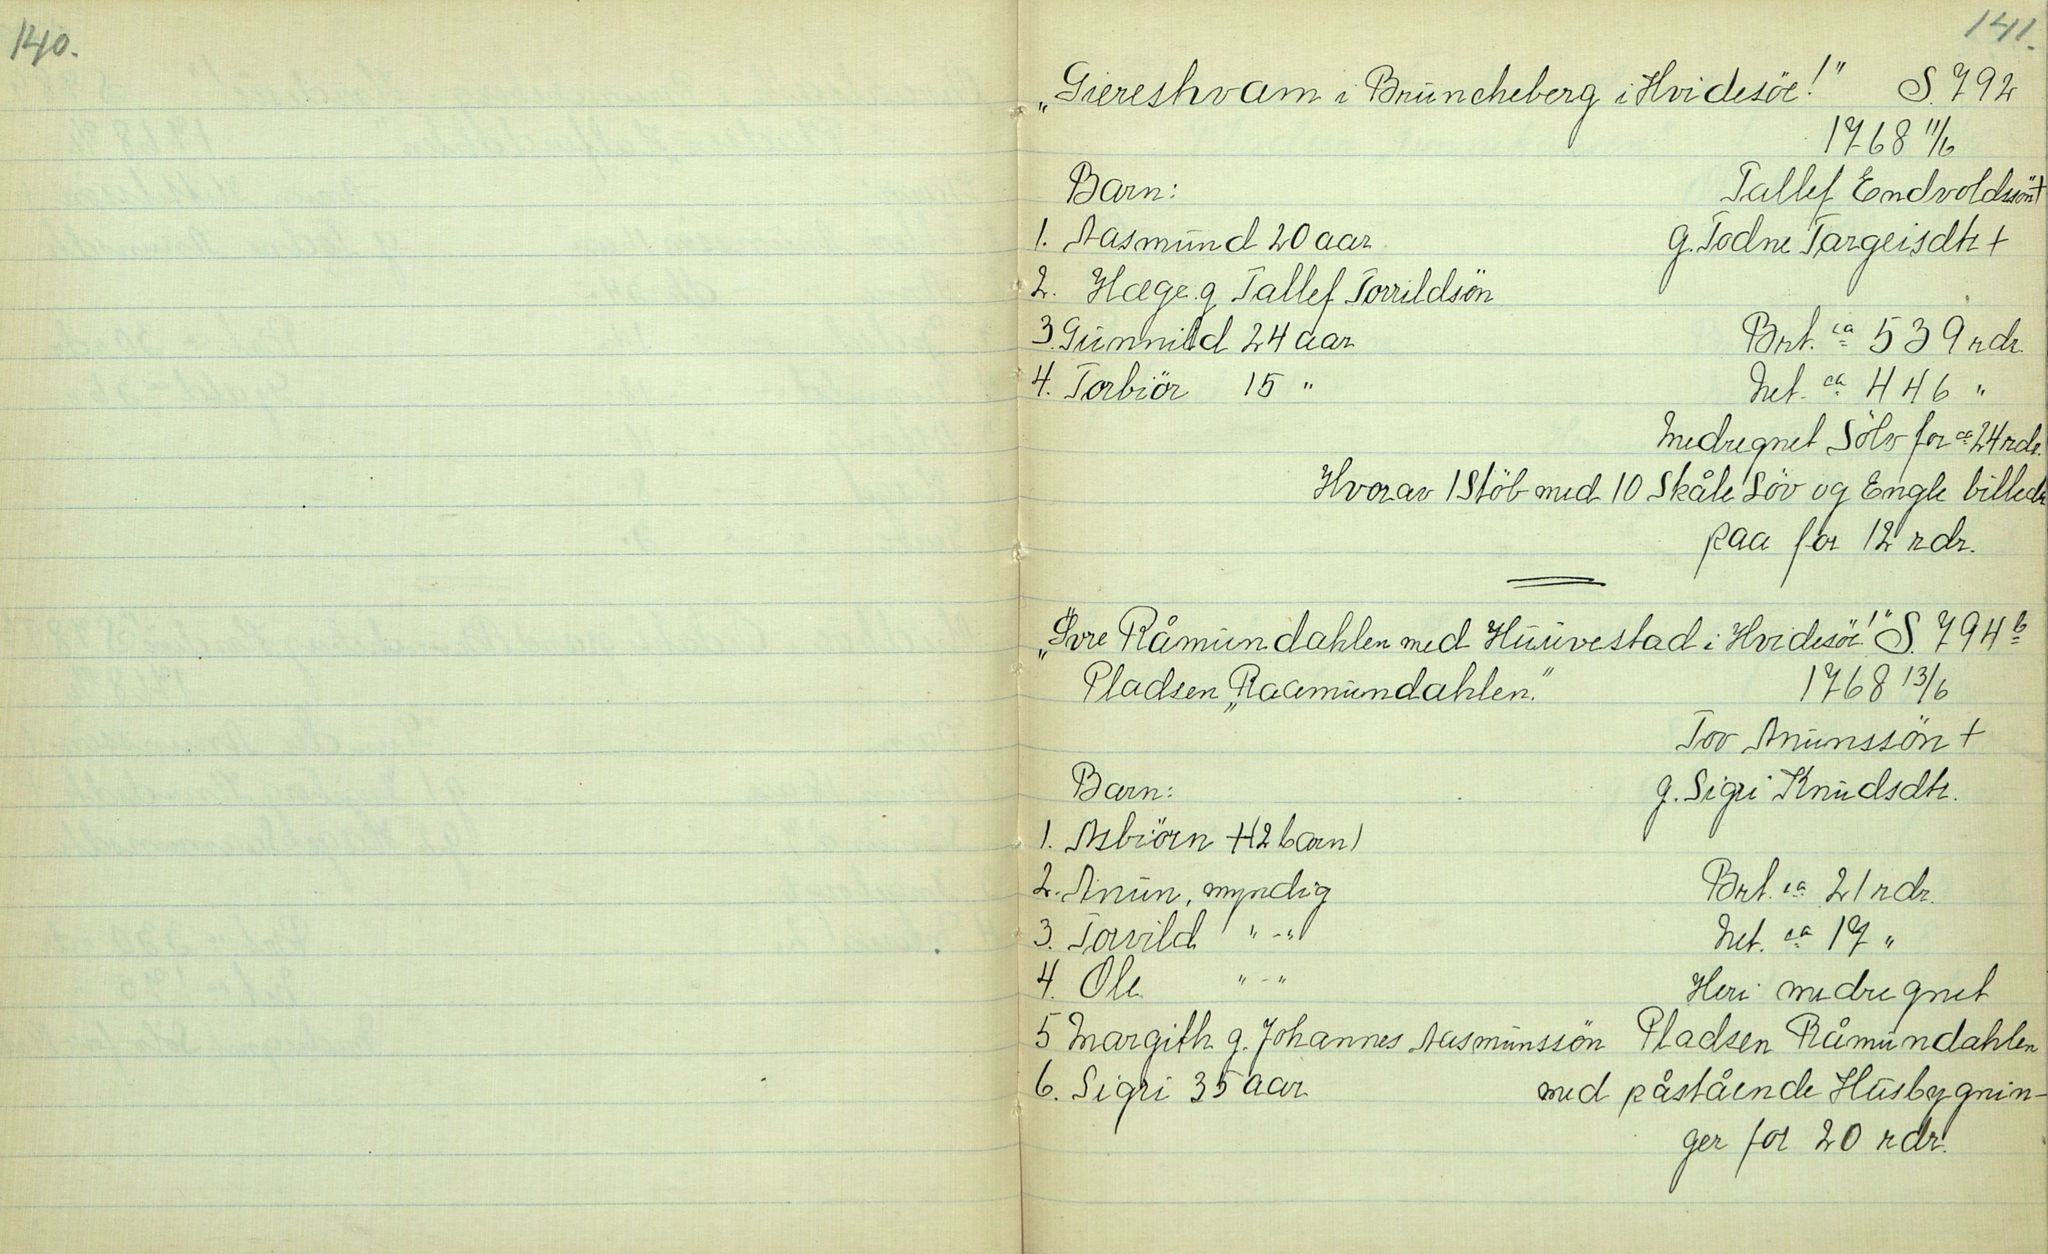 140.
141.
„Giereshvam i Bruncheberg i Hvidesöe!" S. 792
1768 11/6
Barn: Tallef Endvoldssön +
1. Aasmund 20 aar g. Todne Targeisdtr +
2. Hæge g Tallef Torvildsön
3. Gunnild 24 aar Brt. ca 539 rdr.
4. Torbiör 15 " Net. ca 446 "
Medregnet Sölv for ca 24 rdr.
Hvorav 1 Stöb med 10 Skåle Söv og Engle billeder
paa for 12 rdr.
„Övre Råmundahlen med Husuvestad i Hvidesöe!" S. 794 b
Pladsen „Raamundahlen." 1768 13/6
Tov Anunssön +
Barn: g. Sigri Knudsdtr.
1. Asbiörn + (2 barn)
2. Anun, myndig Brt. ca 21 rdr.
3. Torvild " - " Net. ca 17 "
4. Ole " - " Heri medregnet
5 Margith g. Johannes Aasmunssön Pladsen Råmundahlen
6. Sigri 35 aar med påstående Husbygnin-
ger for 20 rdr.